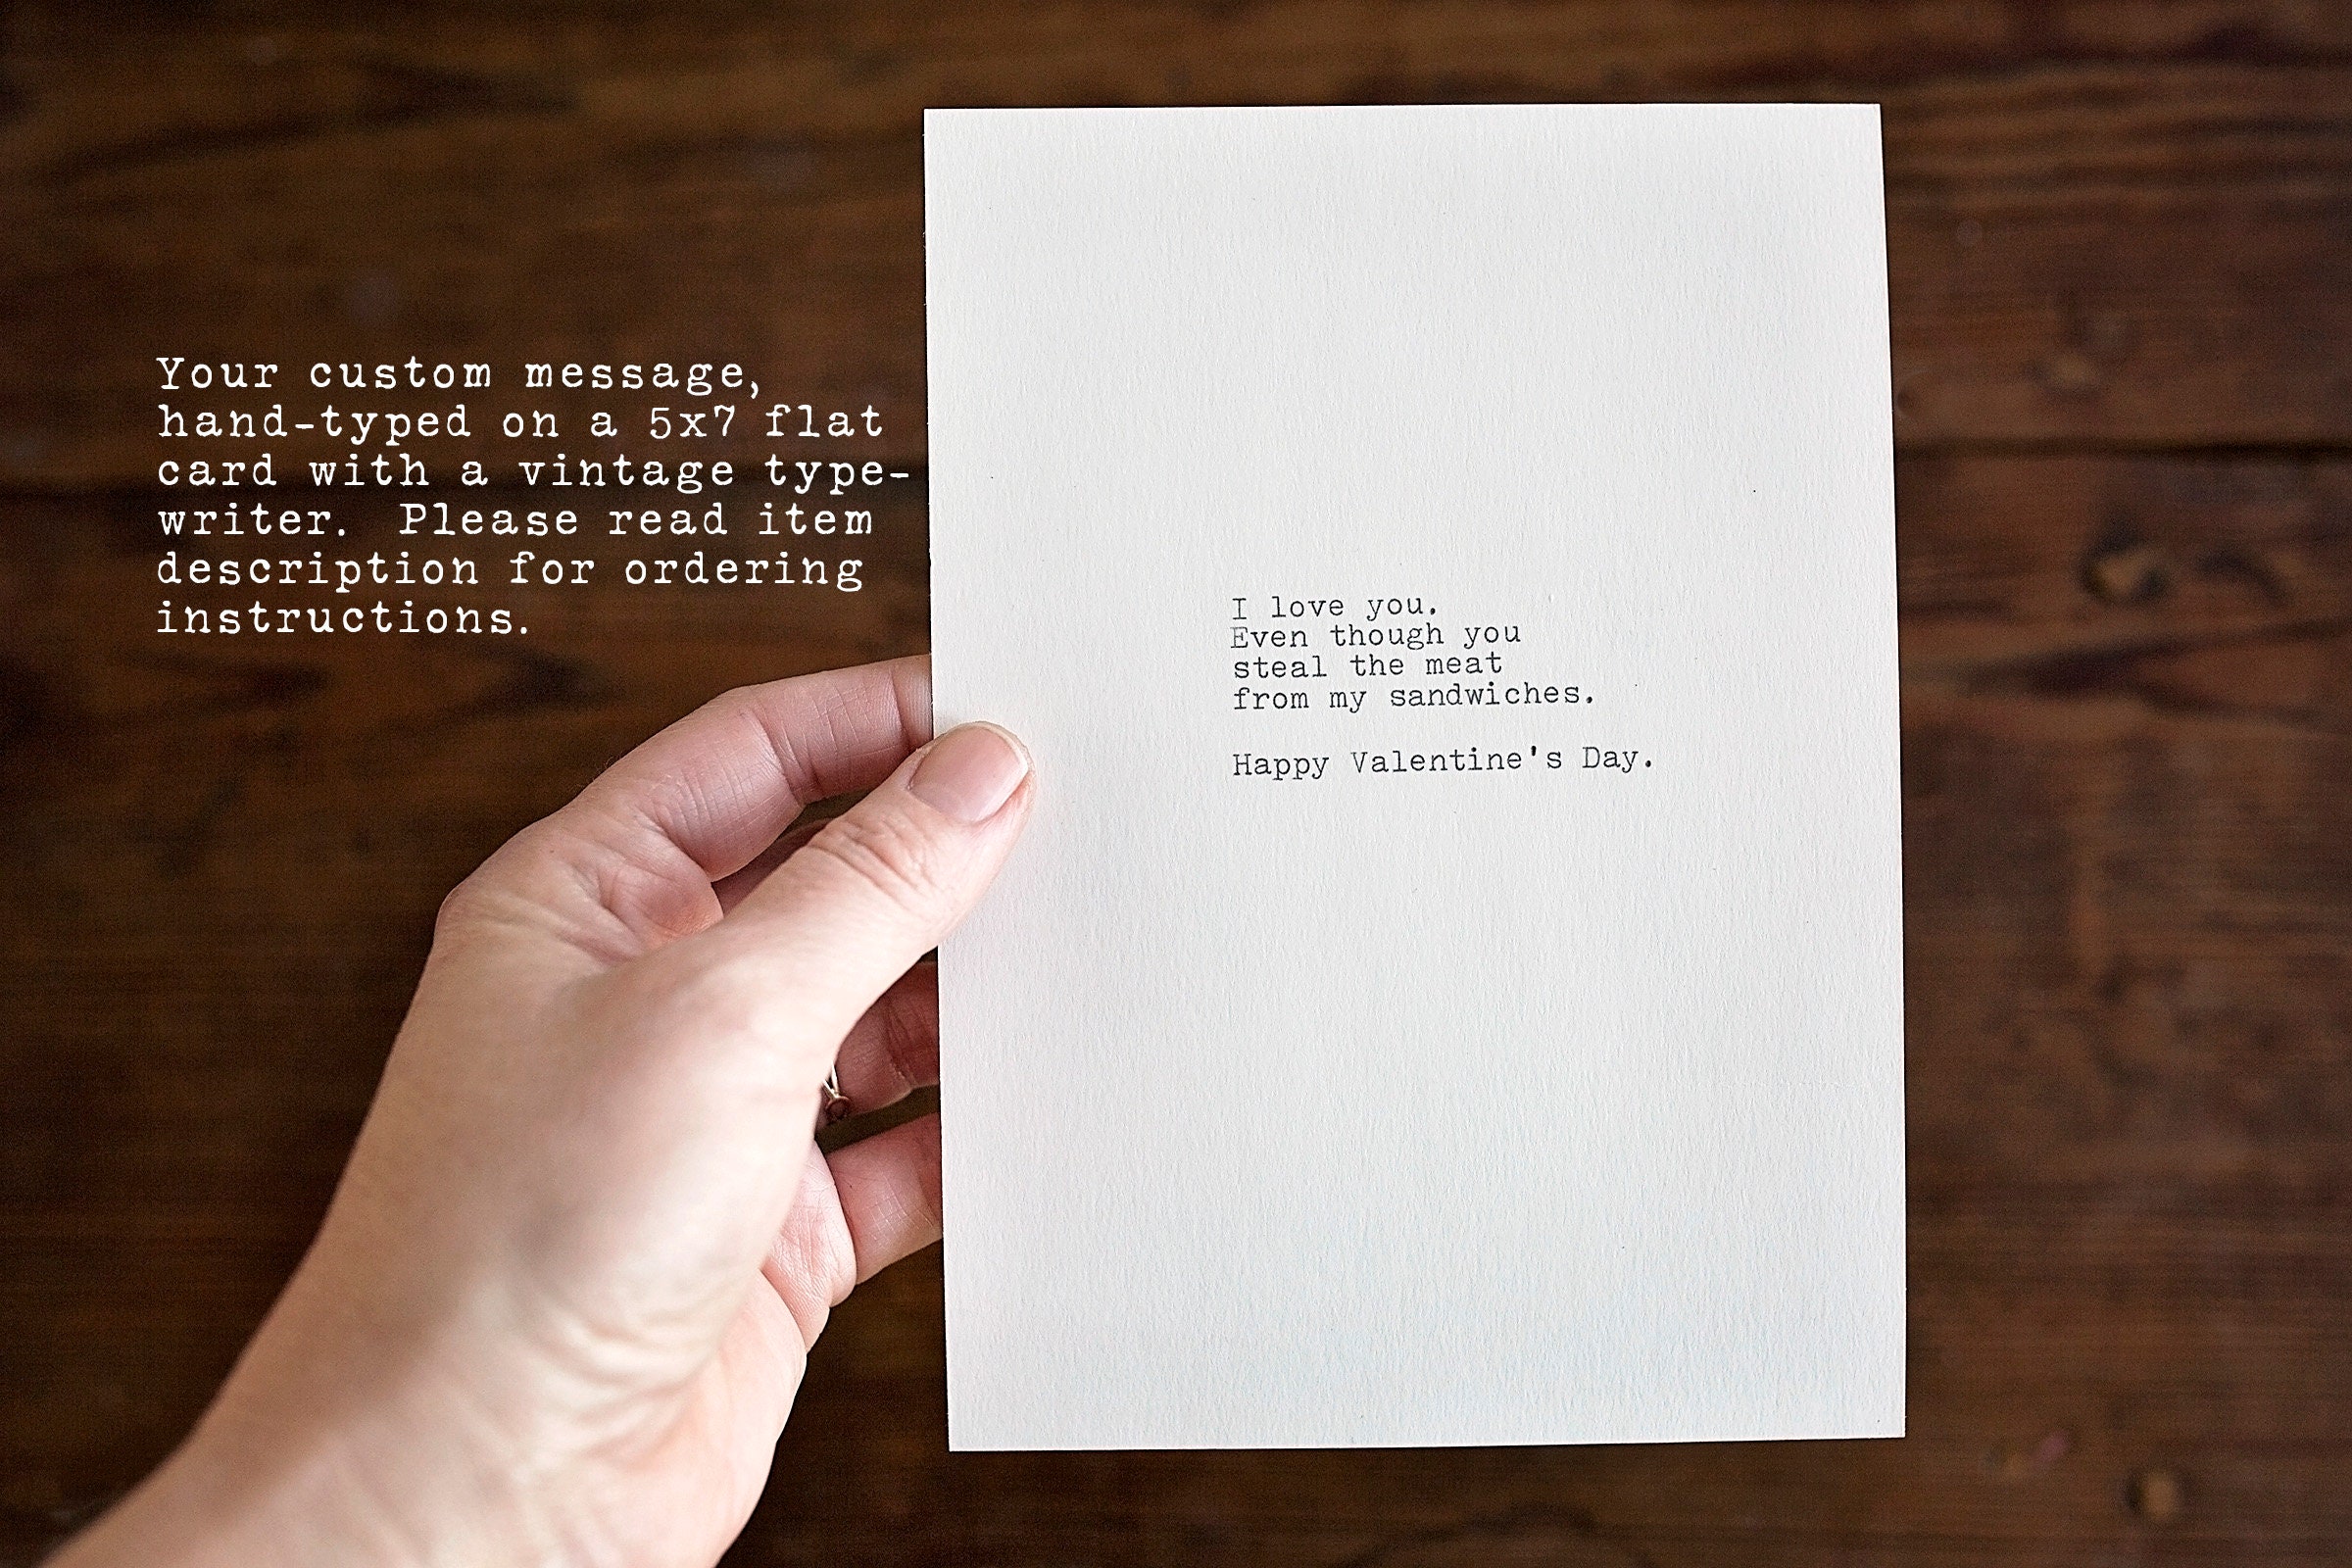 Your custom message,
hand-typed on a 5x7 flat
card with a vintage type-
writer.  Please read item
description for ordering
instructions.
I love you.
Even though you
steal the meat
from my sandwiches.
Happy Valentine's Day.